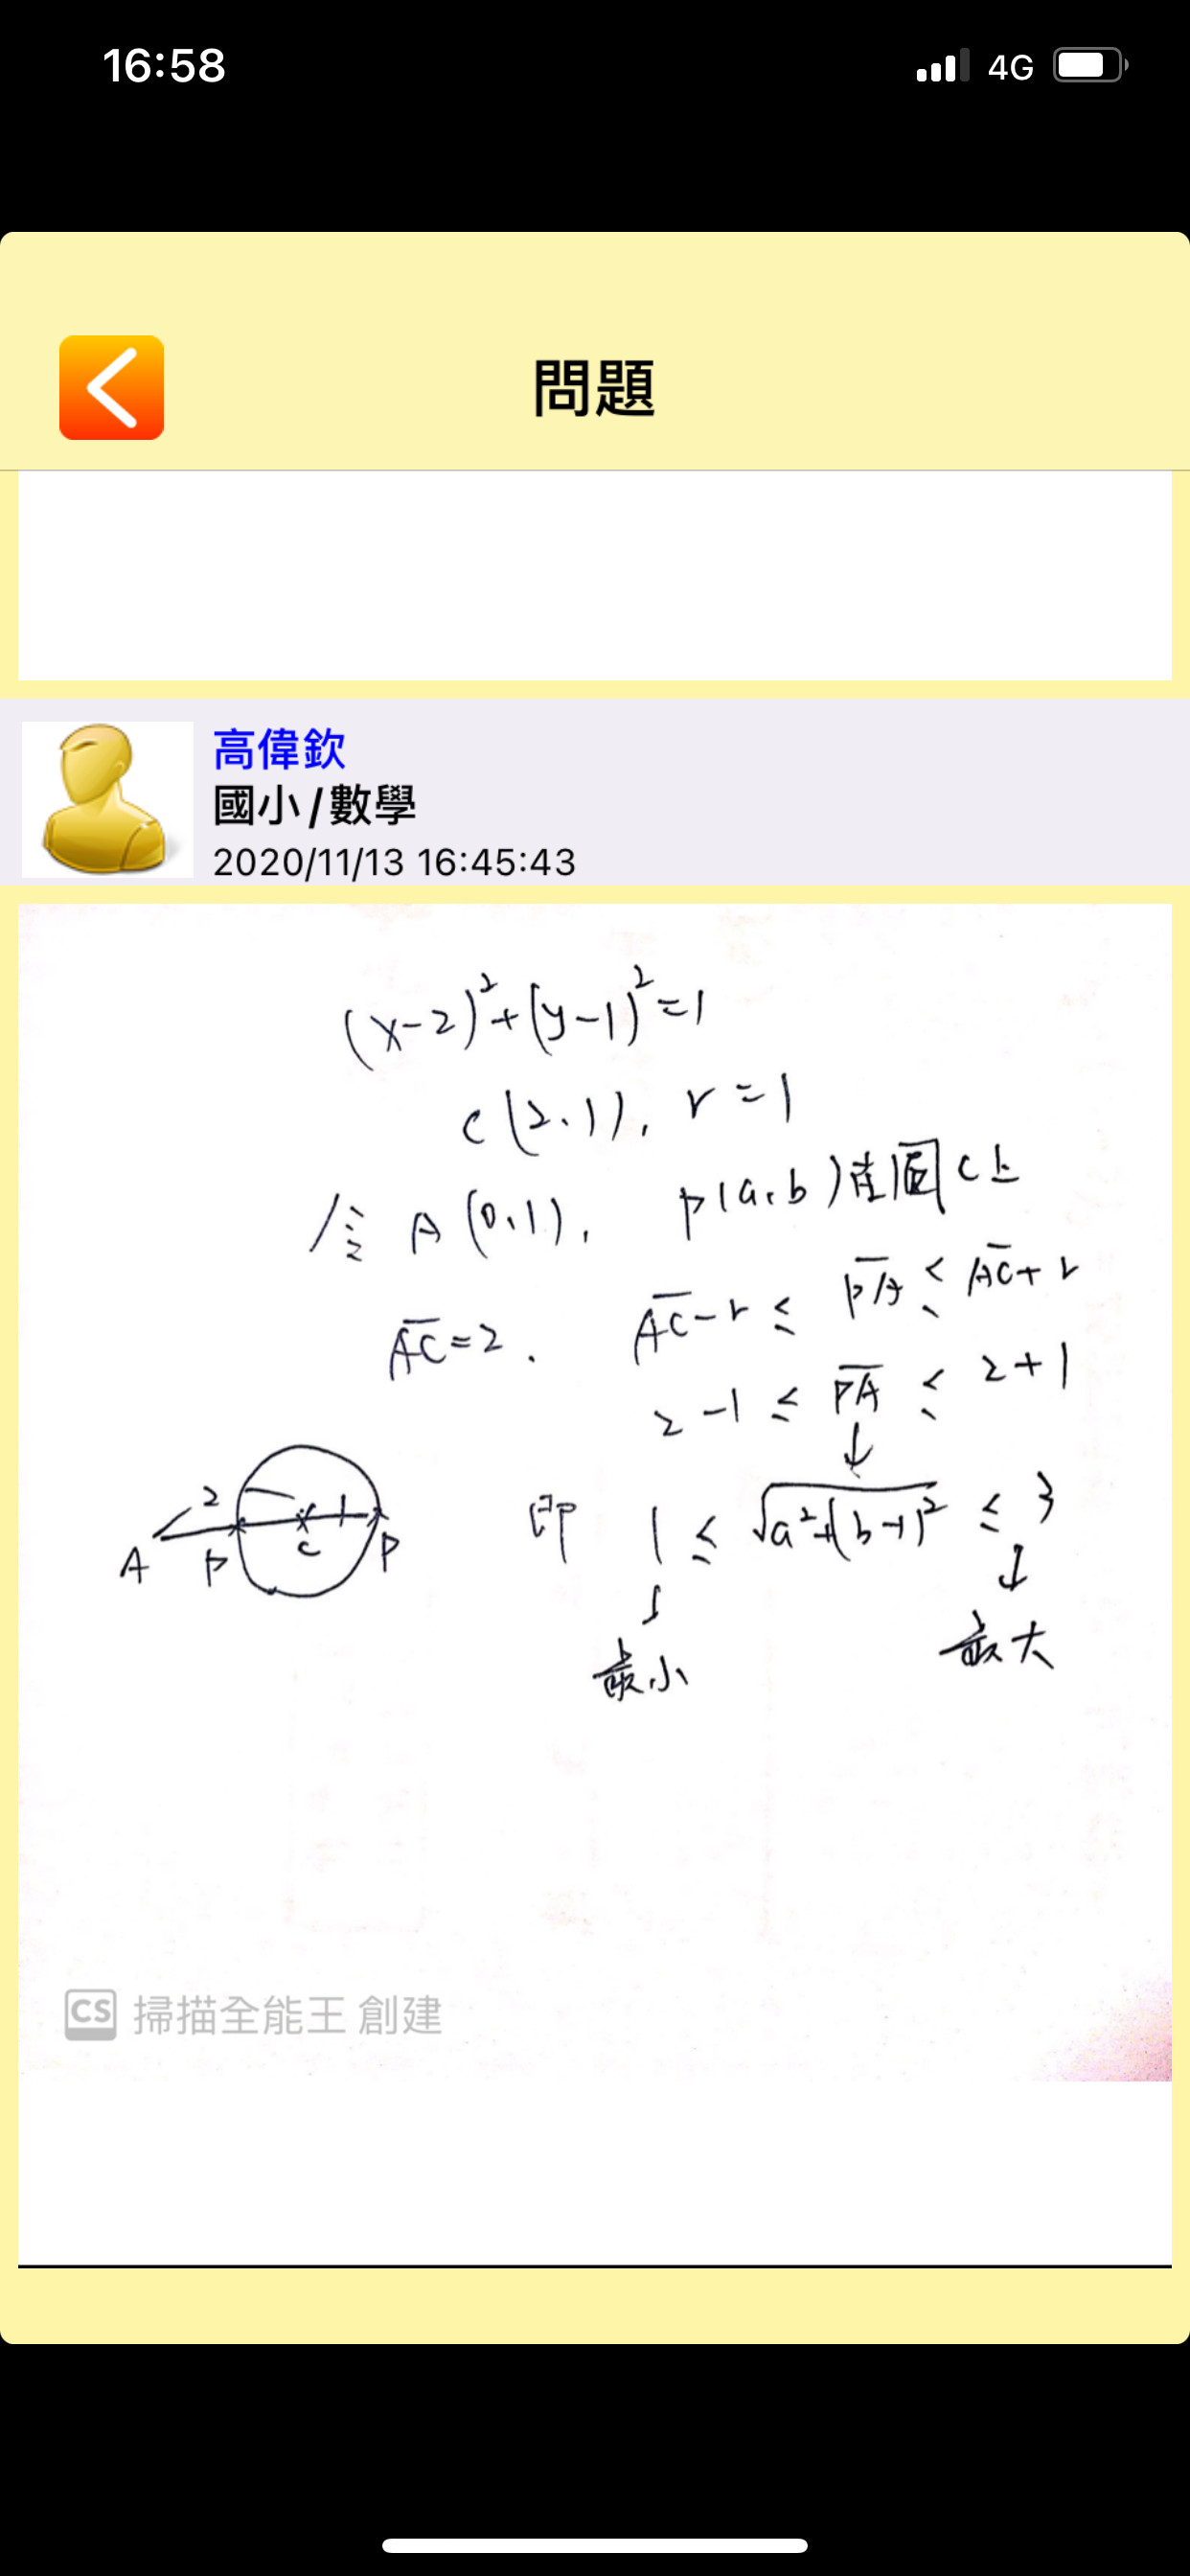 16:58
4G
問題
高偉欽
國小/數學
2020/11/13 16:45:43
(x-2)²+(y-1)²=1
C(2,1), r=1
令 A(0,1), P(a,b)在圓C上
A̅C̅=2. A̅C̅-r ≤ P̅A̅ ≤ A̅C̅+r
2-1 ≤ P̅A̅ ≤ 2+1
↓
即 1 ≤ √a²+(b-1)² ≤ 3
↓ ↓
最小 最大
2 1
A P C P
CS 掃描全能王 創建